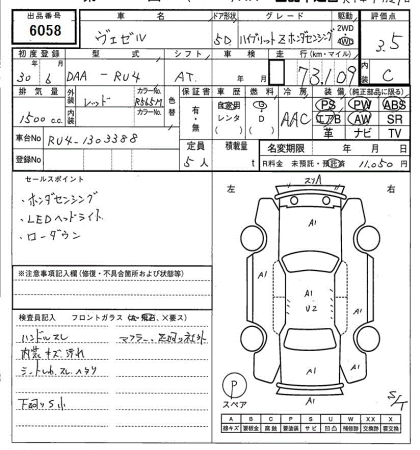 出品番号 車名 ドア形状 グレード 駆動 評価点
6058 ヴェゼル 5D ハイブリットZホンダセンシング 2WD 4WD 3.5
初度登録 型式 シフト 車検 走行(km・マイル) 内装
30年 6月 DAA - RU4 AT. 年 月 73,109 C
排気量 外装 カラーNo. 色替 保証書 車歴 燃料 冷房 装備(純正部品に限る)
1500cc レッド R565M 有・無 自家用 レンタ G D AAC PS PW ABS
内装 カラーNo. エアB AW SR
革 ナビ TV
車台No RU4-1303388 定員 積載量 名変期限 年 月 日
登録No 5人 t R料金 未預託・預託済 11,050円
セールスポイント
・ホンダセンシング
・LEDヘッドライト
・ローダウン
※注意事項記入欄(修復・不具合箇所および状態等)
検査員記入欄 フロントガラス(A・飛石、×要ス)
ハンドルスレ
内装キズ、汚れ
シート
下回りS小
左 右
A1
A1 A1
U2
A1 A1
A1
P
スペア
S/T
A B C P S U W XX X
線キズ 要板金 腐蝕 要塗装 サビ 凹凸 補修跡 交換跡 要交換